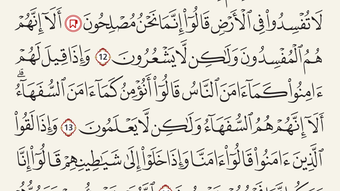 لَا تُفْسِدُوا۟ فِى ٱلْأَرْضِ قَالُوٓا۟ إِنَّمَا نَحْنُ مُصْلِحُونَ أَلَآ إِنَّهُمْ
هُمُ ٱلْمُفْسِدُونَ وَلَـٰكِن لَّا يَشْعُرُونَ 12 وَإِذَا قِيلَ لَهُمْ
ءَامِنُوا۟ كَمَآ ءَامَنَ ٱلنَّاسُ قَالُوٓا۟ أَنُؤْمِنُ كَمَآ ءَامَنَ ٱلسُّفَهَآءُ ۗ
أَلَآ إِنَّهُمْ هُمُ ٱلسُّفَهَآءُ وَلَـٰكِن لَّا يَعْلَمُونَ 13 وَإِذَا لَقُوا۟
ٱلَّذِينَ ءَامَنُوا۟ قَالُوٓا۟ ءَامَنَّا وَإِذَا خَلَوْا۟ إِلَىٰ شَيَـٰطِينِهِمْ قَالُوٓا۟ إِنَّا